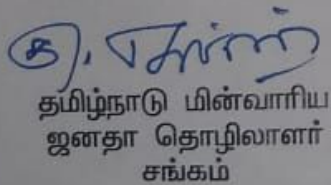 தமிழ்நாடு மின்வாரிய
ஜனதா தொழிலாளர்
சங்கம்